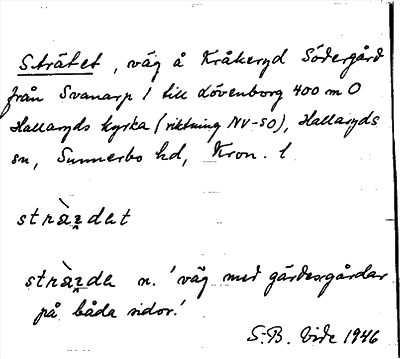 Strätet, väg å Kråkeryd Södergård
från Svanarp 1 till Lövenborg 400 m O
Hallaryds kyrka (riktning NV-SO), Hallaryds
sn, Sunnerbo hd, Kron. l
väg med gärdesgårdar
på båda sidor.'
S-B. Vide 1946